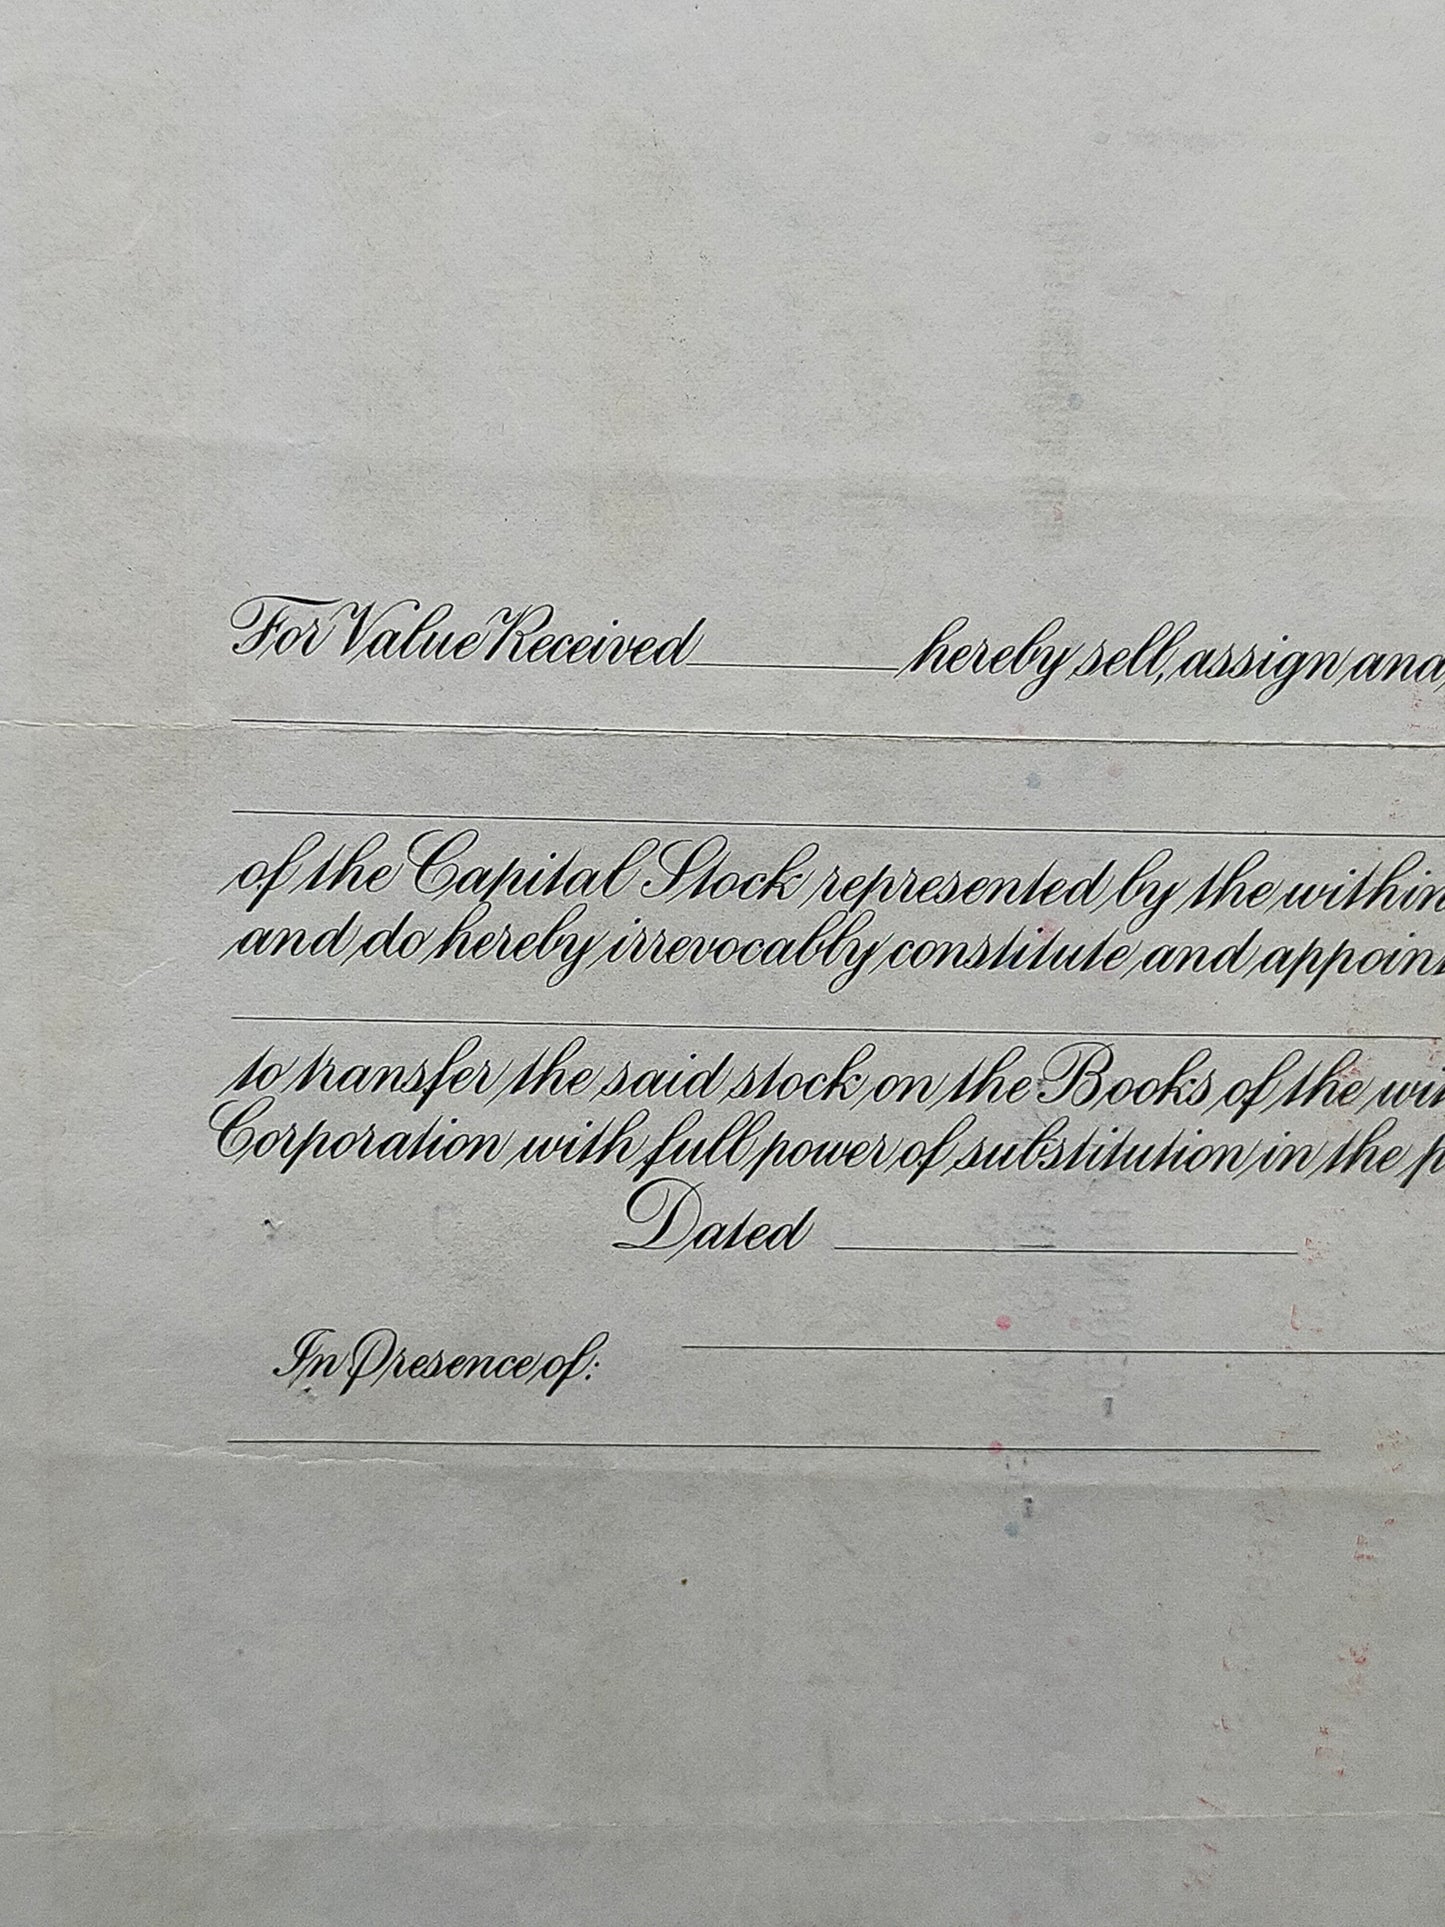 For Value Received____________hereby sell, assign and
of the Capital Stock represented by the within
and do hereby irrevocably constitute and appoint
to transfer the said stock on the Books of the wit
Corporation with full power of substitution in the p
Dated
In Presence of: